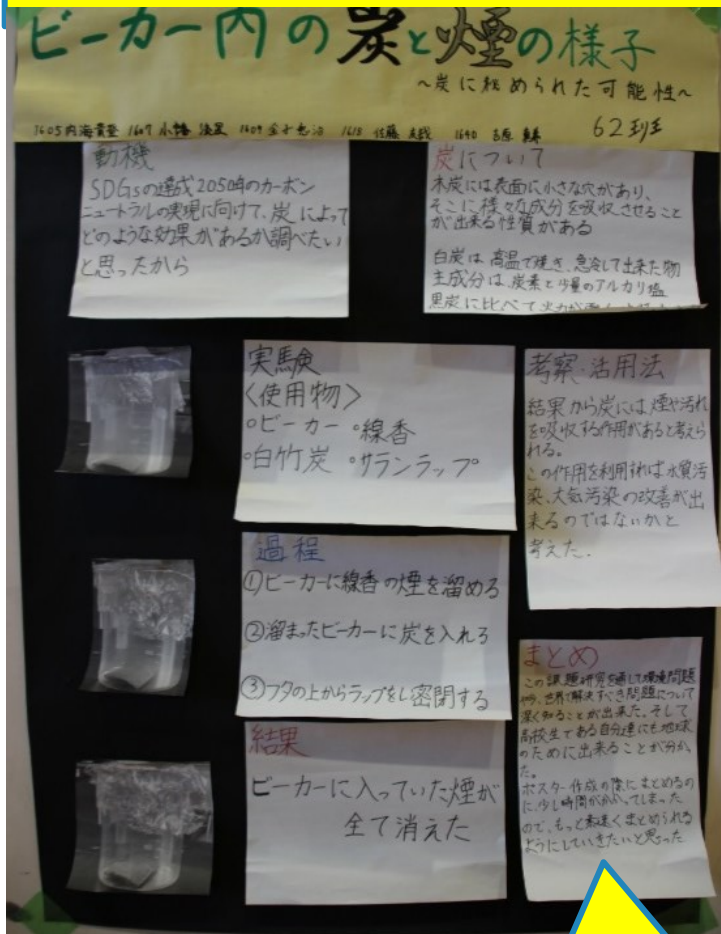 ビーカー内の炭と煙の様子
～炭に秘められた可能性～
62班
動機
SDGsの達成2050年のカーボン
ニュートラルの実現に向けて、炭によって
どのような効果があるか調べたい
と思ったから
炭について
木炭には表面に小さな穴があり、
そこに様々な成分を吸収させること
が出来る性質がある
白炭は高温で焼き、急冷して出来た物
主成分は、炭素と少量のアルカリ塩
黒炭に比べて火力が
実験
〈使用物〉
○ビーカー ○線香
○白竹炭 ○サランラップ
過程
①ビーカーに線香の煙を溜める
②溜まったビーカーに炭を入れる
③フタの上からラップをし密閉する
結果
ビーカーに入っていた煙が
全て消えた
考察・活用法
結果から炭には煙や汚れ
を吸収する作用があると考えら
れる。
この作用を利用すれば水質汚
染、大気汚染の改善が出
来るのではないかと
考えた。
まとめ
この課題研究を通して環境問題
や、世界で解決すべき問題について
深く知ることが出来た。そして
高校生である自分達にも地球
のために出来ることが分かっ
た。
ポスター作成の際にまとめるの
に少し時間がかかってしまった
ので、もっと素速くまとめられる
ようにしていきたいと思った